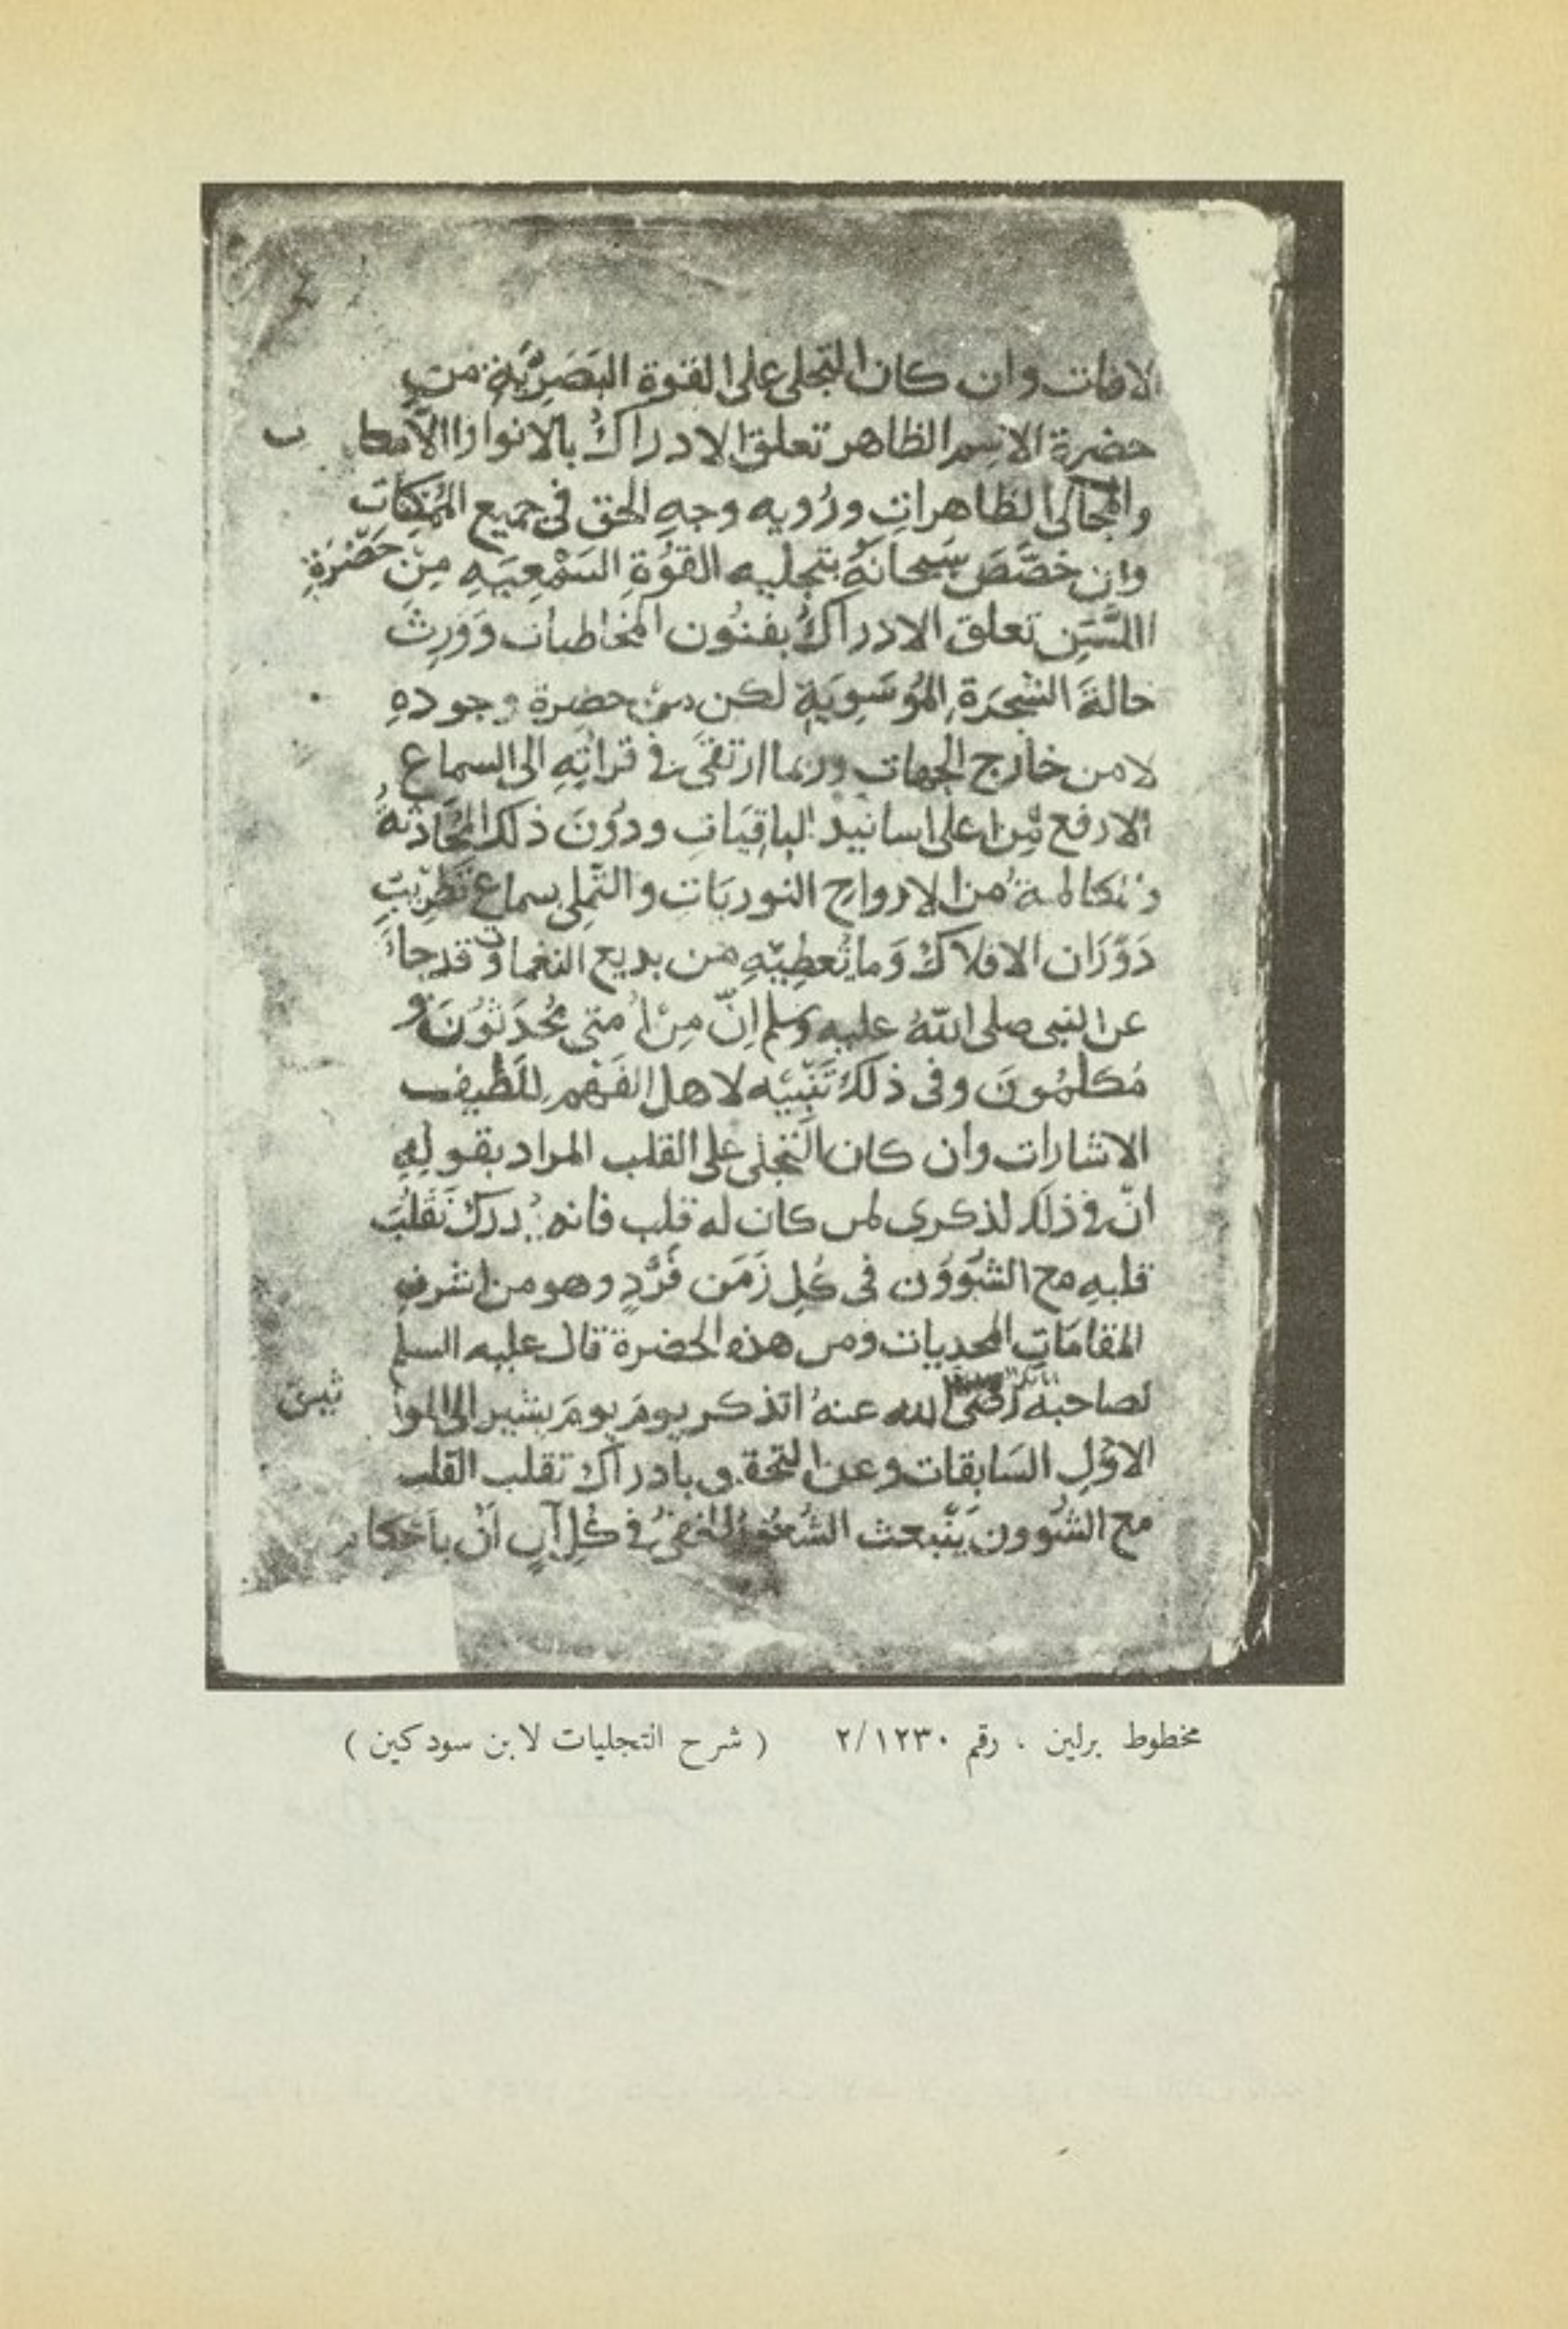 الافات وان كان التجلى على القوة البَصَرِيَّةِ من
حضرة الاسم الظاهر تعلق الادراكُ بالانوار
والمجالى الظاهراتِ ورُويه وجهِ الحق فى جميع المُمْكِنات
وان خصَّصَ سبحانهُ بتجليه القُوَّةِ السَمْعِيَهِ مِنْ حَضْرَةِ
تعلق الادراكُ بفنُون المخاطبات وَوَرِثَ
حالةَ الشجَرَةِ المُوسَوِيَةِ لكن من حضرة وجودهِ
لا من خارج الجهات وربما ارتقى فى قرائتِهِ الى السماع
الارفع مِن اعلى اسانيد الباقِيَات ودُونَ ذلك المُحَادثةُ
والمكالمةُ من الارواح النوريَات والتملى بسماع
دَوَرَان الافلاك وَما تُعطِيْهِ من بديع النغمات وقد جاَ
عن النبى صلى اللهُ عليه وسلم اِنّ مِنْ اُمتى مُحَدَثوُنَ و
مُكلمُونَ وفى ذلكَ تَنْبِيْه لاهل الفَهْم للَطيف
الاشارات وان كان التجلى على القلب المراد بقولهِ
انّ فى ذلك لذكرى لمن كان له قلب فانه يُدرك تَقَلُبَ
قلبهِ مع الشُؤُون فى كُلِ زَمَن فَرْدٍ وهو من اشرفِ
المقامَاتِ المحديات ومن هذه الحضرة قال عليه السلم
لصاحبه رضى الله عنهُ اتذكر يومَ يومَ يشير الى الموا ثيق
الاوَلِ السَابقات وعن التحقق بادراك تقلب القلب
مع الشُوون يَنْبعث فى كُلِ آن
مخطوط برلين ، رقم ٢/١٢٣٠ ( شرح التجليات لابن سودكين )